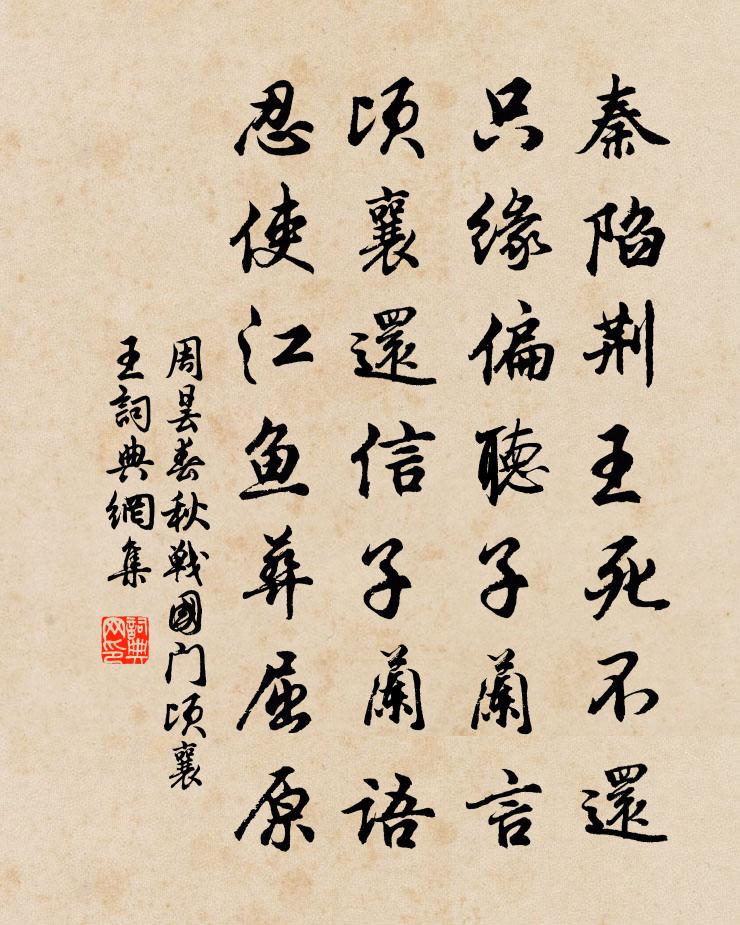 秦陷荆王死不還
只緣偏聽子蘭言
頃襄還信子蘭語
忍使江鱼葬屈原
周昙春秋戰國门頃襄
王詞典網集
詞典网印